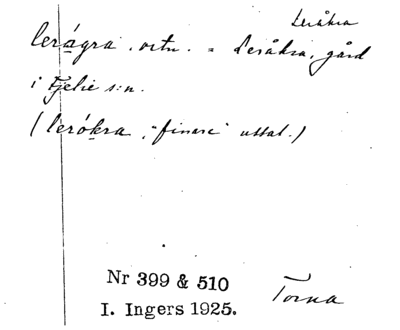 Leråkra
lerágra. ortn. = Leråkra, gård
i Fjelie s:n.
(lerókra, "finare" uttal.)
Nr 399 & 510
I. Ingers 1925.
Torna